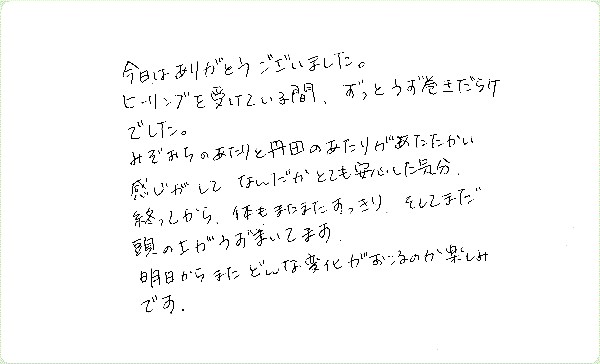 今日はありがとうございました。
ヒーリングを受けている間、ずっとうず巻きだらけ
でした。
みぞおちのあたりと丹田のあたりがあたたかい
感じがして なんだかとても安心した気分.
終ってから、体もまたまたすっきり、そしてまだ
頭の上がうずまいてます.
明日からまたどんな変化がおこるのか楽しみ
です.